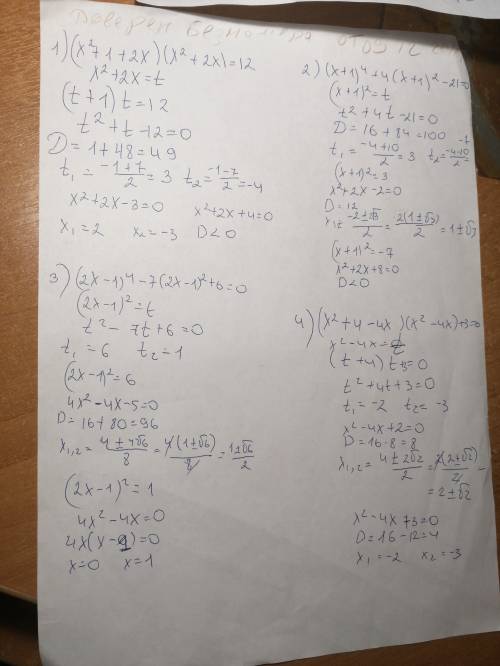 1) (x²+1+2x)(x²+2x)=12
x²+2x=t
(t+1)t=12
t²+t-12=0
D=1+48=49
t₁=(-1+7)/2=3 t₂=(-1-7)/2=-4
x²+2x-3=0 x²+2x+4=0
x₁=2 x₂=-3 D<0
2) (x+1)⁴+4(x+1)²-21=0
(x+1)²=t
t²+4t-21=0
D=16+84=100
t₁=(-4+10)/2=3 t₂=(-4-10)/2=-7
(x+1)²=3
x²+2x-2=0
D=12
=2(1±√3)/2=1±√3
(x+1)²=-7
x²+2x+8=0
D<0
3) (2x-1)⁴-7(2x-1)²+6=0
(2x-1)²=t
t²-7t+6=0
t₁=6 t₂=1
(2x-1)²=6
4x²-4x-5=0
D=16+80=96
x₁,₂=(4±4√6)/8=4(1±√6)/8=(1±√6)/2
(2x-1)²=1
4x²-4x=0
4x(x-1)=0
x=0 x=1
4) (x²+4-4x)(x²-4x)+3=0
x²-4x=t
(t+4)t+3=0
t²+4t+3=0
t₁=-2 t₂=-3
x²-4x+2=0
D=16-8=8
x₁,₂=(4±2√2)/2=2(2±√2)/2=
=2±√2
x²-4x+3=0
D=16-12=4
x₁=-2 x₂=-3